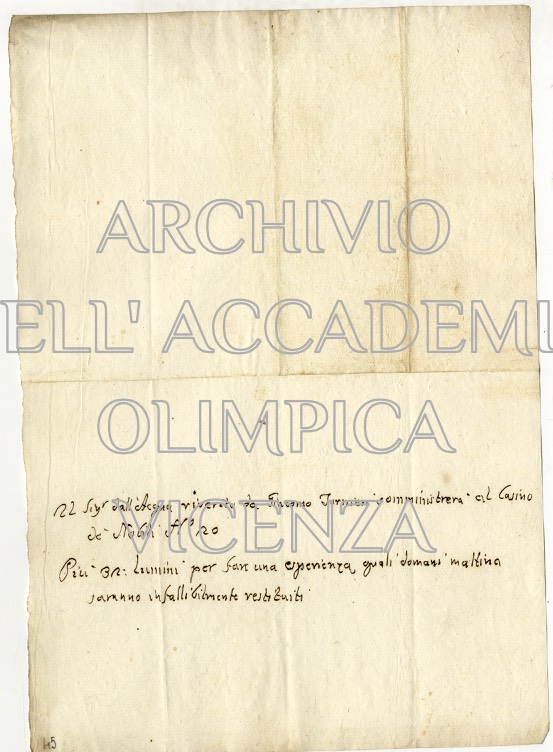 ARCHIVIO
ELL' ACCADEMI
OLIMPICA
VICENZA
Il Sigr dall'Acqua riverito da Giacomo somministrerà al Casino
de Nobili No 20
Più 32: Lumini per fare una esperienza quali domani mattina
saranno infallibilmente restituiti
45